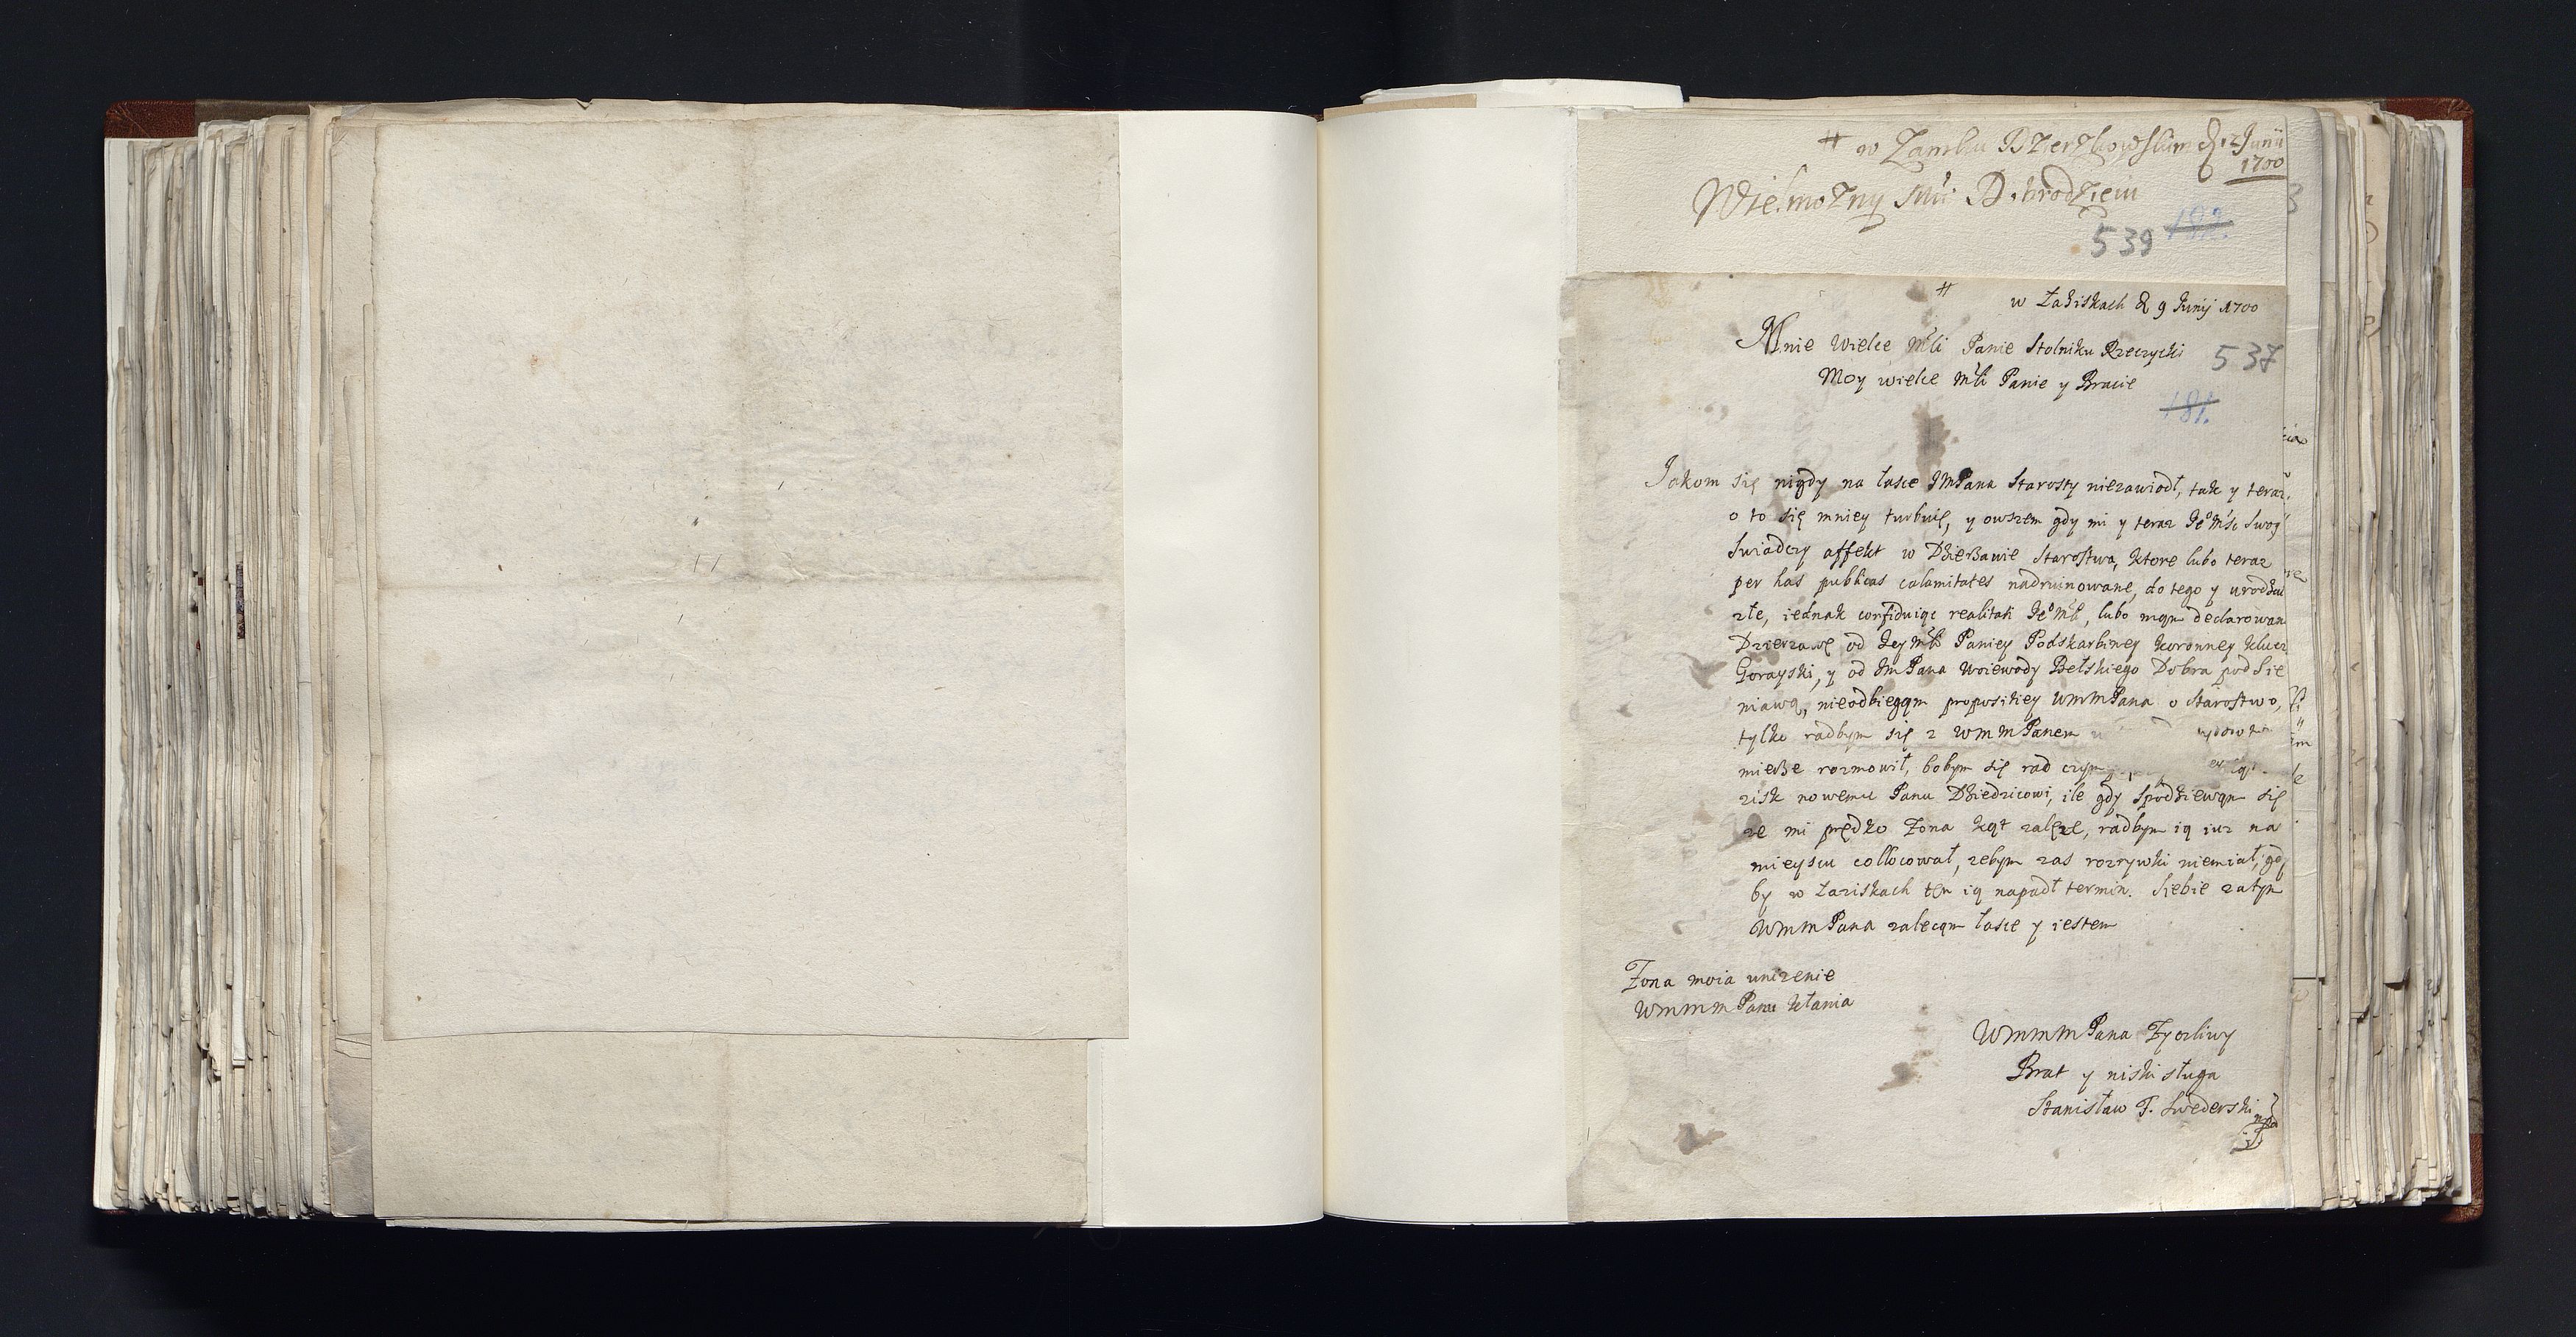 # w Zamku Bierzkowskim D 12 Junii
1700
Wielmozny Mci Dobrodzieiu
539 182.
# w Łaziskach D 9 Junij 1700
Mnie Wielce Mći Panie Stolniku Rzeczycki 537
Moy wielce Mći Panie y Bracie
181.
Jakom się nigdy na łasce JMPana Starosty niezawiodł, tak y teraz
o to się mniey turbuię, y owszem gdy mi y teraz Jeo Mść Swoy
Swiadczy affekt w Dzierżawie Starostwa, ktore lubo teraz
per has publicas calamitates nadruinowane, do tego y urodzai
złe, iednak confiduiąc realitati Jeo Mći, lubo mąm declarowan
Dzierzawę od Jey Mći Paniey Podskarbiney Koronney Klucz
Gorayski, y od JmPana Woiewody Bełskiego Dobra pod Sie
niawą, nieodbiegąm propositiey WmmPana o Starostwo,
tylko radbym się z WmmPanem
mieRe rozmowił, bobym się rad czym
zisk nowemu Panu Dziedzicowi, ile gdy Spodziewąm się
ze mi prędko Zona kąt zalęze, radbym ią iuz na
mieyscu collocował, zebym zas rozrywki niemiał, gd
by w Łaziskach ten ią napadł termin. Siebie zatym
WmmPana zalecąm łasce y iestem
Zona moia unizenie
WmmmPanu kłania
WmmmPana Zyczliwy
Brat y niski sługa
Stanisław F. Swederski
mpp